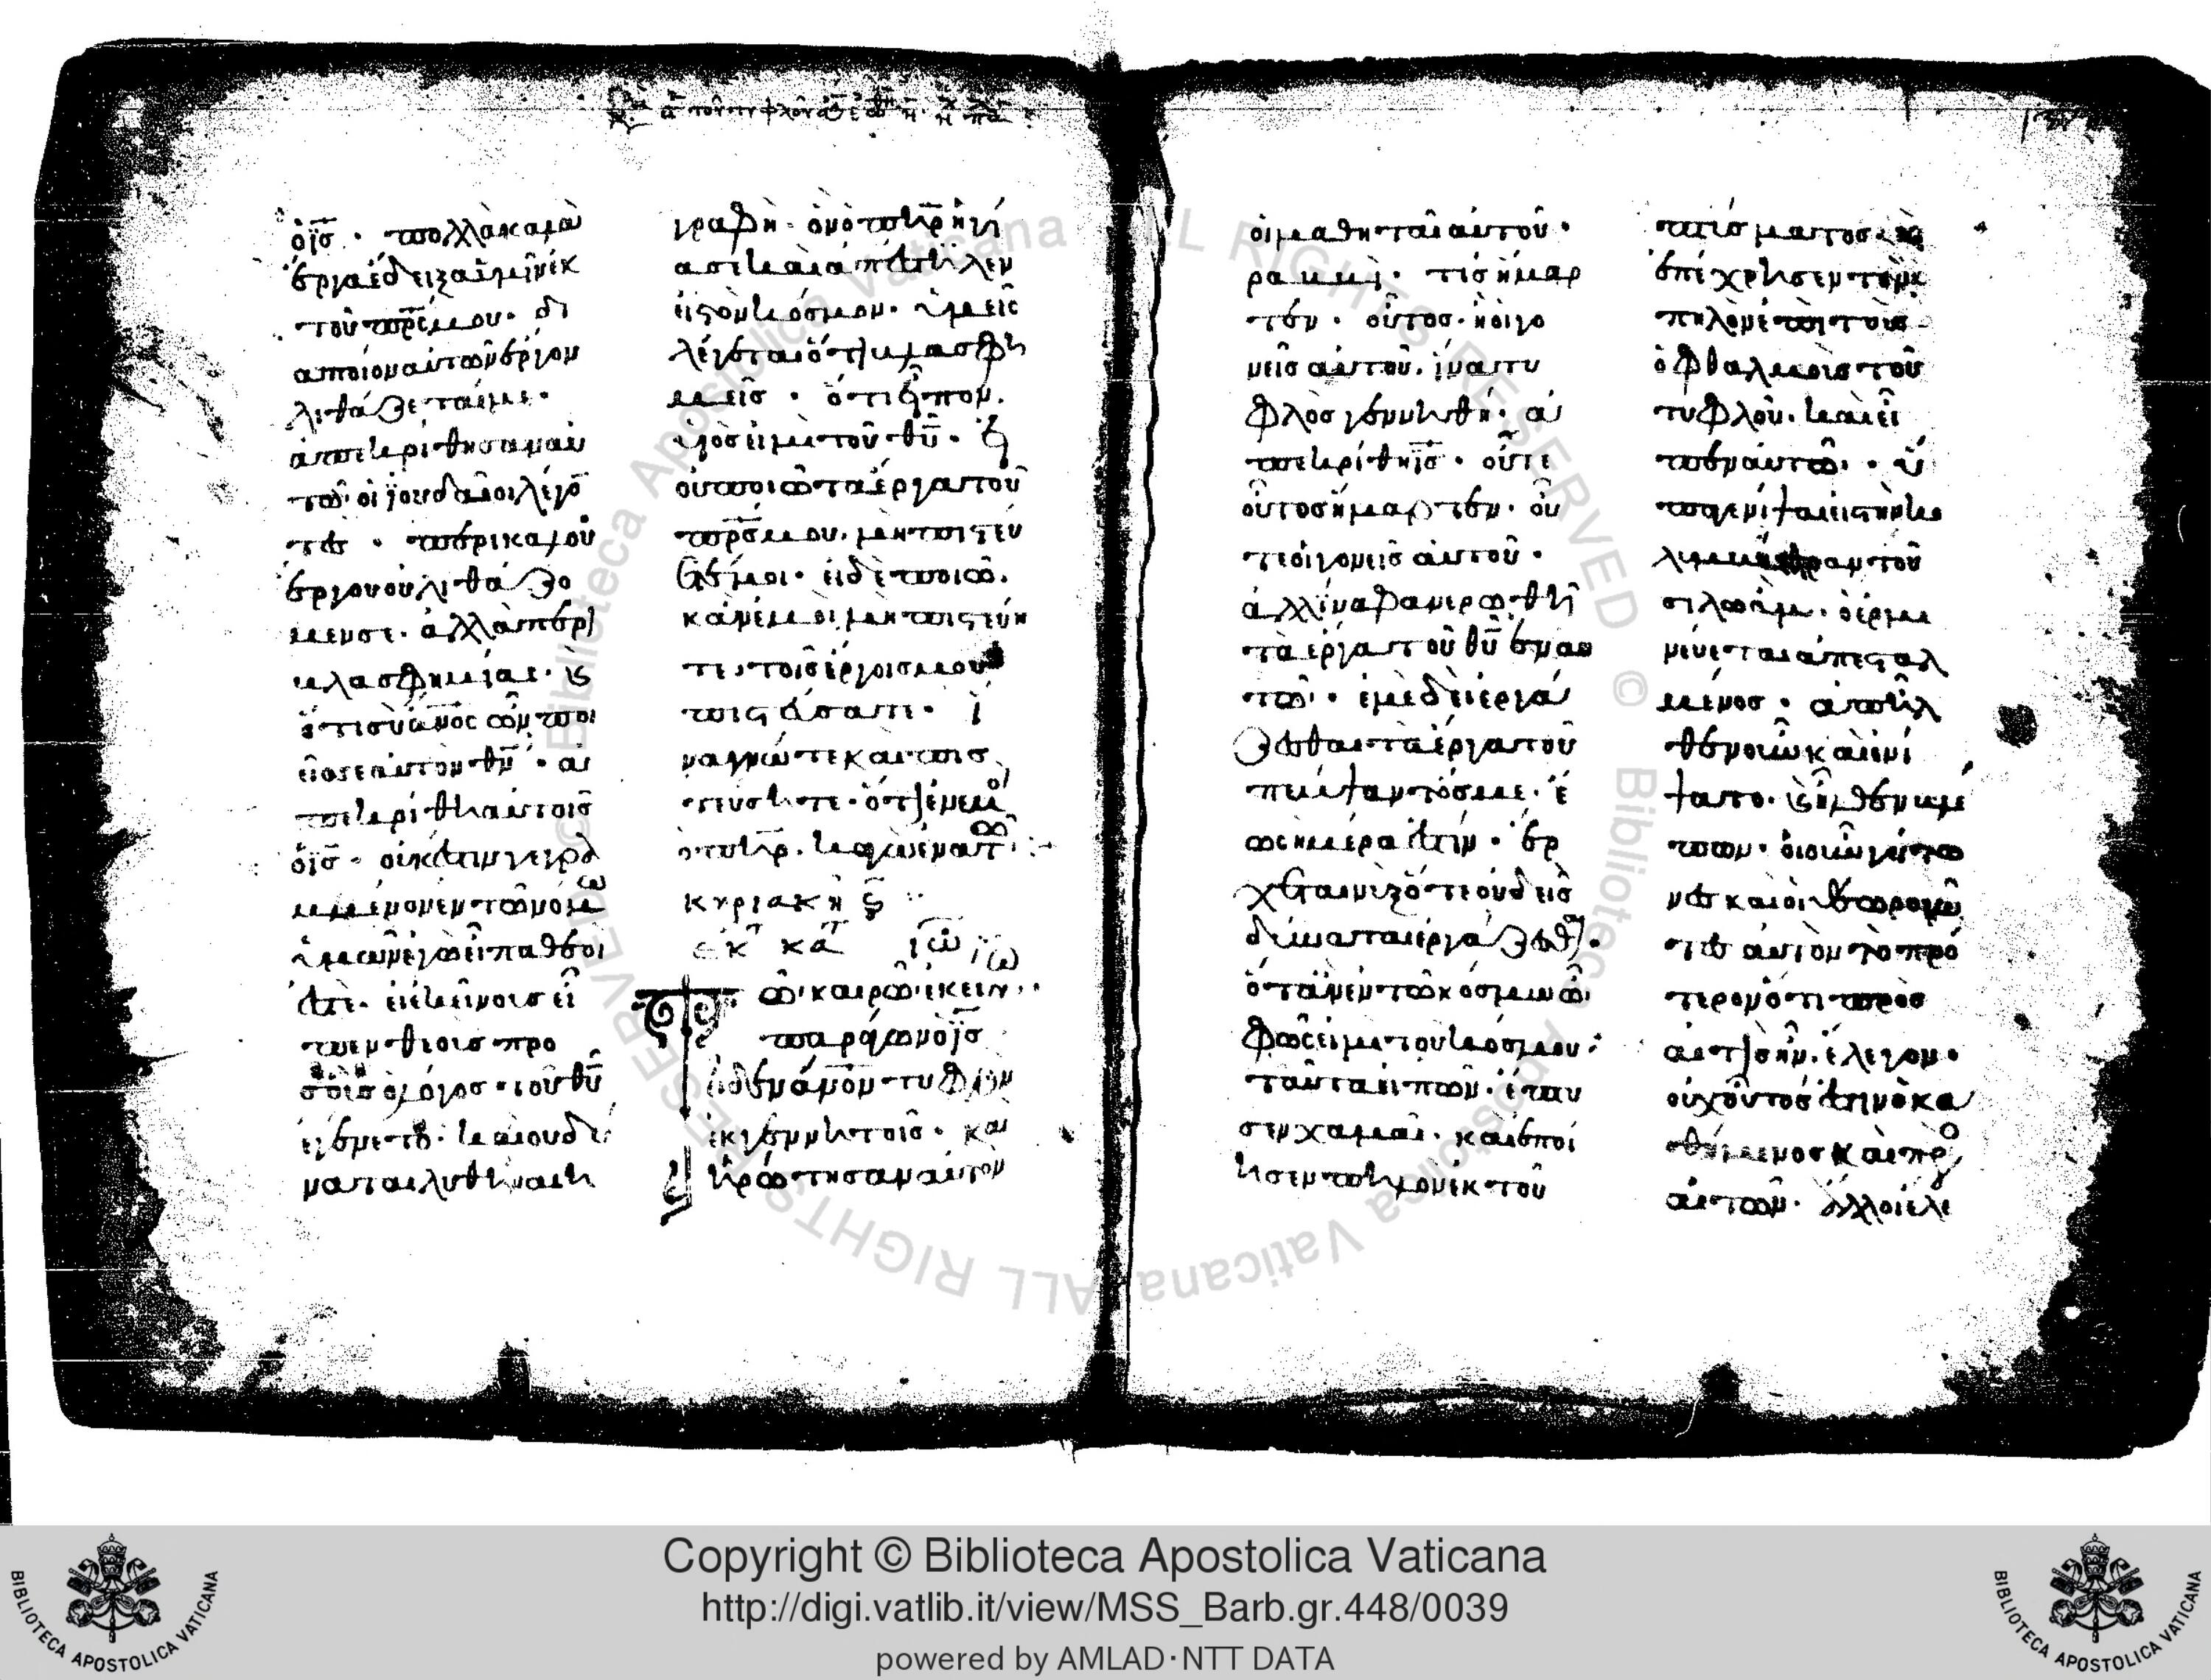 ὁ ϊ̅ς̅ · πολλὰ καλὰ
ἔργα ἔδειξα ὑμῖν ἐκ
τοῦ π̅ρ̅ς̅ μου · δι
αποῖον αὐτῶν ἔργον
λιθάζεταί με ·
ἀπεκρίθησαν αὐ
τῶ οἱ ϊουδαῖοι λέγο̅
τες · περὶ καλοῦ
ἔργου οὐ λιθάζο
μεν σε · ἀλλὰ περὶ
βλασφημίας · κ̀
ὅτι σὺ ἄ̅ν̅ο̅ς ὢν ποι
εῖς σεαυτὸν θ̅ν̅ · ἀ
πεκρίθη αὐτοῖς
ὁ ϊ̅ς̅ · οὐκ ἔστιν γεγρα
μμένον ἐν τῶ νόμω
ὑμῶν ἐγὼ εἶπα θεοί
ἐστε · εἰ ἐκείνους εἶ
πεν θεοὺς προ
σ οὓς ὁ λόγος τοῦ θ̅υ̅
ἐγένετο · και οὐ δύ
ναται λυθῆναι ἡ
γραφὴ · ὃν ὁ π̅η̅ρ̅ ἡγί
ασε καὶ ἀπέστειλεν
εἰς τὸν κόσμον · ὑμεῖς
λέγεται ὅτι βλασφη
μεῖς · ὅτι εἶπον ·
υἱὸς εἰμι τοῦ θ̅υ̅ · εἰ
οὐ ποιῶ τὰ ἔργα τοῦ
π̅ρ̅ς̅ μου · μὴ πιστεύ
ετέ μοι · εἰ δὲ ποιῶ ·
κἂν ἐμοὶ μὴ πιστεύη
τε τοῖς ἔργοις μου
πιστεύσατε · ἵ
να γνῶτε καὶ πισ
τευσητε · ὅτι ἐν ἐμοὶ
ὁ π̅η̅ρ̅ · κἀγὼ ἐν αὐτῶ
κυριακὴ ϛ̅
ἐκ κατ ιω
Τῶ καιρῶ ἐκείνω
παράγων ὁ ϊ̅ς̅
εἶδεν ἄν̅ο̅ν τυφλὸν
ἐκ γεννητῆς · και
ἠρώτησαν αὐτὸν
οἱ μαθηταὶ αὐτοῦ ·
ραββὶ · τίς ἥμαρ
τεν · οὗτος · ἢ οἱ γο
νεῖς αὐτοῦ · ἵνα τυ
φλὸς γεννηθῆ · ἀ
πεκρίθη ϊ̅ς̅ · οὔτε
οὗτος ἥμαρτεν · οὔ
τε οἱ γονεῖς αὐτοῦ ·
ἀλλ ἵνα φανερωθῆ
τὰ ἔργα τοῦ θ̅υ̅ ἐν αὐ
τῶ · ἐμὲ δεῖ ἐργά
ζεσθαι τὰ ἔργα τοῦ
πέμψαντός με · ἕ
ως ἡμέρα ἐστίν · ἔρ
χεται νὺξ ὅτε οὐδεὶς
δύναται ἐργάζεσθαι ·
ὅταν ἐν τῶ κόσμω ὦ ·
φῶς εἰμι τοῦ κόσμου ·
ταῦτα εἰπὼν · ἔπτυ
σεν χαμαὶ · καὶ ἐποί
ησεν πηλὸν ἐκ τοῦ
πτύσματος κ̀
ἐπέχρησεν τὸν
πηλὸν ἐπὶ τοὺς
ὀφθαλμοὺς τοῦ
τυφλοῦ · και εἶ
πεν αὐτῶ · ὕ
παγε νίψαι εἰς τὴν κο
λυμβήθραν τοῦ
σιλωάμ · ὃ ἑρμη
νεύεται ἀπεσταλ
μένος · ἀπῆλ
θεν οὖν καὶ ἐνί
ψατο · κ̀ ἦλθεν βλέ
πων · οἱ οὖν γείτο
νες και οἱ θεωροῦν
τες αὐτὸν τὸ πρό
τερον ὅτι προσ
αίτης ἦν · ἔλεγον ·
οὐχ οὗτός ἐστιν ὁ κα
θήμενος και προσ
αιτῶν · ἄλλοι ἔλε
Copyright © Biblioteca Apostolica Vaticana
http://digi.vatlib.it/view/MSS_Barb.gr.448/0039
powered by AMLAD·NTT DATA